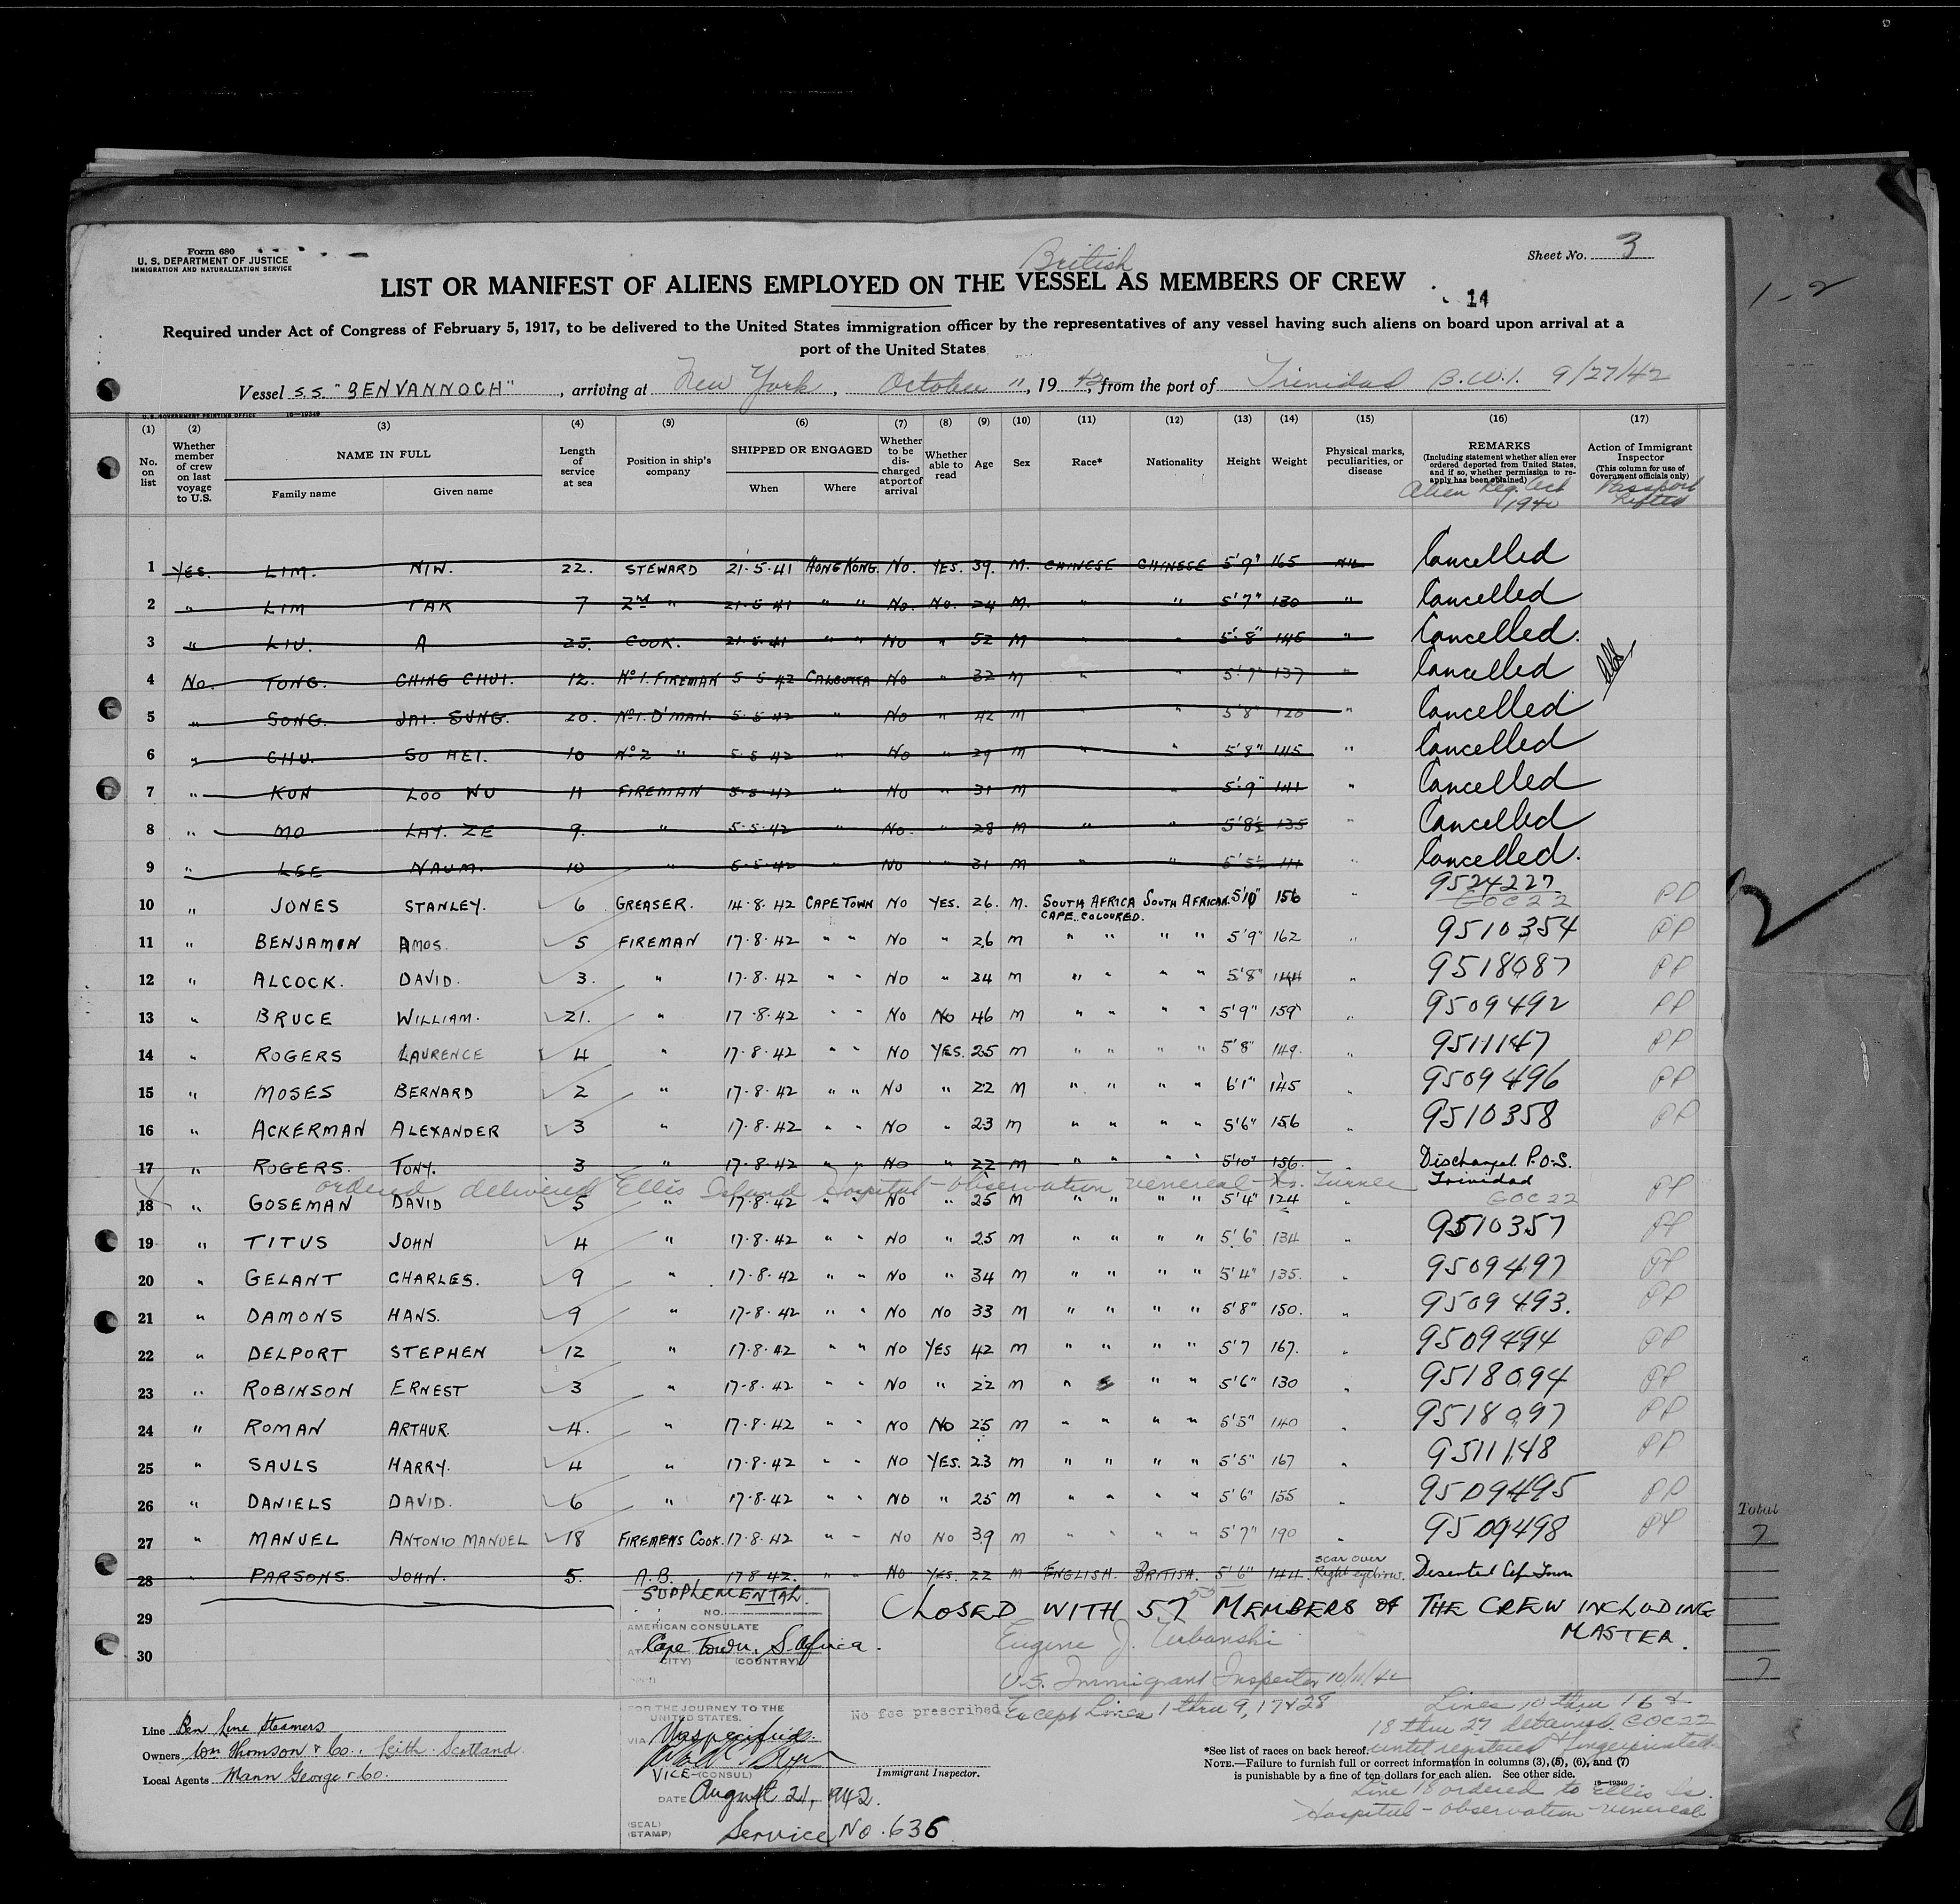 Form 680
U. S. DEPARTMENT OF JUSTICE
IMMIGRATION AND NATURALIZATION SERVICE
Sheet No. 3
British
LIST OR MANIFEST OF ALIENS EMPLOYED ON THE VESSEL AS MEMBERS OF CREW
14
1-2
Required under Act of Congress of February 5, 1917, to be delivered to the United States immigration officer by the representatives of any vessel having such aliens on board upon arrival at a
port of the United States
Vessel S.S. "BENVANNOCH", arriving at New York, October 11, 1942, from the port of Trinidad B.W.I. 9/27/42
U.S. GOVERNMENT PRINTING OFFICE 16—19349
(1) (2) (3) (4) (5) (6) (7) (8) (9) (10) (11) (12) (13) (14) (15) (16) (17)
No. on list
Whether member of crew on last voyage to U.S.
NAME IN FULL
Family name Given name
Length of service at sea
Position in ship's company
SHIPPED OR ENGAGED
When Where
Whether to be discharged at port of arrival
Whether able to read
Age
Sex
Race*
Nationality
Height
Weight
Physical marks, peculiarities, or disease
REMARKS
(Including statement whether alien ever ordered deported from United States, and if so, whether permission to reapply has been obtained)
Alien Reg. Act 1940
Action of Immigrant Inspector
(This column for use of Government officials only)
Passport Lifted
1 YES. LIM. NIW. 22. STEWARD 21.5.41 HONG KONG. No. YES. 39. M. CHINESE CHINESE 5'9" 165 NIL Cancelled
2 " LIM TAK 7 2ND " 21.5.41 " " No. No. 24 M. " " 5'7" 130 " Cancelled
3 " LIU. A 25. COOK. 21.5.41 " " No " 52 M " " 5'8" 145 " Cancelled.
4 No. TONG. CHING CHUI. 12. No 1. FIREMAN 5.5.42 CALCUTTA No " 32 M " " 5'7" 137 " Cancelled
5 " SONG. JAI. SUNG. 20. No 1. D'MAN. 5.5.42 " No " 42 M " 5'8" 120 " Cancelled
6 " CHU. SO HEI. 10 No 2 " 5.5.42 " No " 29 M " " 5'8" 145 " Cancelled
7 " KUN LOO WU 11 FIREMAN 5.5.42 " No " 31 M " 5'9" 141 " Cancelled
8 " MO LAY. ZE 9. " 5.5.42 " No. " 28 M " " 5'8½ 135 " Cancelled
9 " LEE NAUM. 10 " 5.5.42 " No " 31 M " " 5'5½ 111 " Cancelled.
10 " JONES STANLEY. 6 GREASER. 14.8.42 CAPE TOWN No YES. 26. M. SOUTH AFRICA CAPE COLOURED. SOUTH AFRICAN. 5'10" 156 " 9524227 GOC22 PP
11 " BENJAMIN AMOS. 5 FIREMAN 17.8.42 " " No " 26 M " " " " 5'9" 162 " 9510354 PP
12 " ALCOCK. DAVID. 3. " 17.8.42 " " No " 24 M " " " " 5'8" 144 " 9518087 PP
13 " BRUCE WILLIAM. 21. " 17.8.42 " " No No 46 M " " " " 5'9" 159 " 9509492 PP
14 " ROGERS LAURENCE 4 " 17.8.42 " " No YES. 25 M " " " " 5'8" 149. " 9511147 PP
15 " MOSES BERNARD 2 " 17.8.42 " " No " 22 M " " " " 6'1" 145 " 9509496 PP
16 " ACKERMAN ALEXANDER 3 " 17.8.42 " " No " 23 M " " " " 5'6" 156 " 9510358 PP
17 " ROGERS. TONY. 3 " 17.8.42 " " No " 22 M " " " " 5'10" 156. " Discharged P.O.S. Trinidad
ordered delivered Ellis Island Hospital - observation venereal
18 " GOSEMAN DAVID 5 " 17.8.42 " " No " 25 M " " " " 5'4" 124 " GOC22 PP
19 " TITUS JOHN 4 " 17.8.42 " " No " 25 M " " " " 5'6" 134 " 9510357 PP
20 " GELANT CHARLES. 9 " 17.8.42 " " No " 34 M " " " " 5'4" 135. " 9509497 PP
21 " DAMONS HANS. 9 " 17.8.42 " " No No 33 M " " " " 5'8" 150. " 9509493. PP
22 " DELPORT STEPHEN 12 " 17.8.42 " " No YES 42 M " " " " 5'7 167. " 9509494 PP
23 " ROBINSON ERNEST 3 " 17.8.42 " " No " 22 M " " " 5'6" 130 " 9518094 PP
24 " ROMAN ARTHUR. 4. " 17.8.42 " " No No 25 M " " " " 5'5" 140 " 9518097 PP
25 " SAULS HARRY. 4 " 17.8.42 " " No YES. 23 M " " " " 5'5" 167 " 9511148 PP
26 " DANIELS DAVID. 6 " 17.8.42 " " No " 25 M " " " " 5'6" 155 " 9509495 PP
27 " MANUEL ANTONIO MANUEL 18 FIREMENS COOK. 17.8.42 " " No No 39 M " " " " 5'7" 190 " 9509498 PP
28 " PARSONS. JOHN. 5. A.B. 17.8.42. " " No YES. 22 M ENGLISH. BRITISH. 5'6" 144. scar over Right eyebrow. Deserted Cape Town
29
30
Total
7
7
CLOSED WITH 57 MEMBERS OF THE CREW INCLUDING
MASTER.
55
Eugene J. Urbanski
U.S. Immigrant Inspector 10/11/42
Except Lines 1 thru 9, 17 & 28
SUPPLEMENTAL.
NO.
AMERICAN CONSULATE
AT Cape Town, S. Africa.
(CITY) (COUNTRY)
FOR THE JOURNEY TO THE
UNITED STATES.
VIA Unspecified.
VICE-(CONSUL)
DATE August 21, 1942.
(SEAL)
(STAMP)
Service No. 636
No fee prescribed
Immigrant Inspector.
Line Ben Line Steamers
Owners Wm Thomson & Co., Leith. Scotland.
Local Agents Mann George & Co.
Lines 10 thru 16 &
18 thru 27 detained GOC22
until registered & fingerprinted.
*See list of races on back hereof.
NOTE.—Failure to furnish full or correct information in columns (3), (5), (6), and (7)
is punishable by a fine of ten dollars for each alien. See other side.
16—19349
Line 18 ordered to Ellis Is.
Hospital - observation - venereal